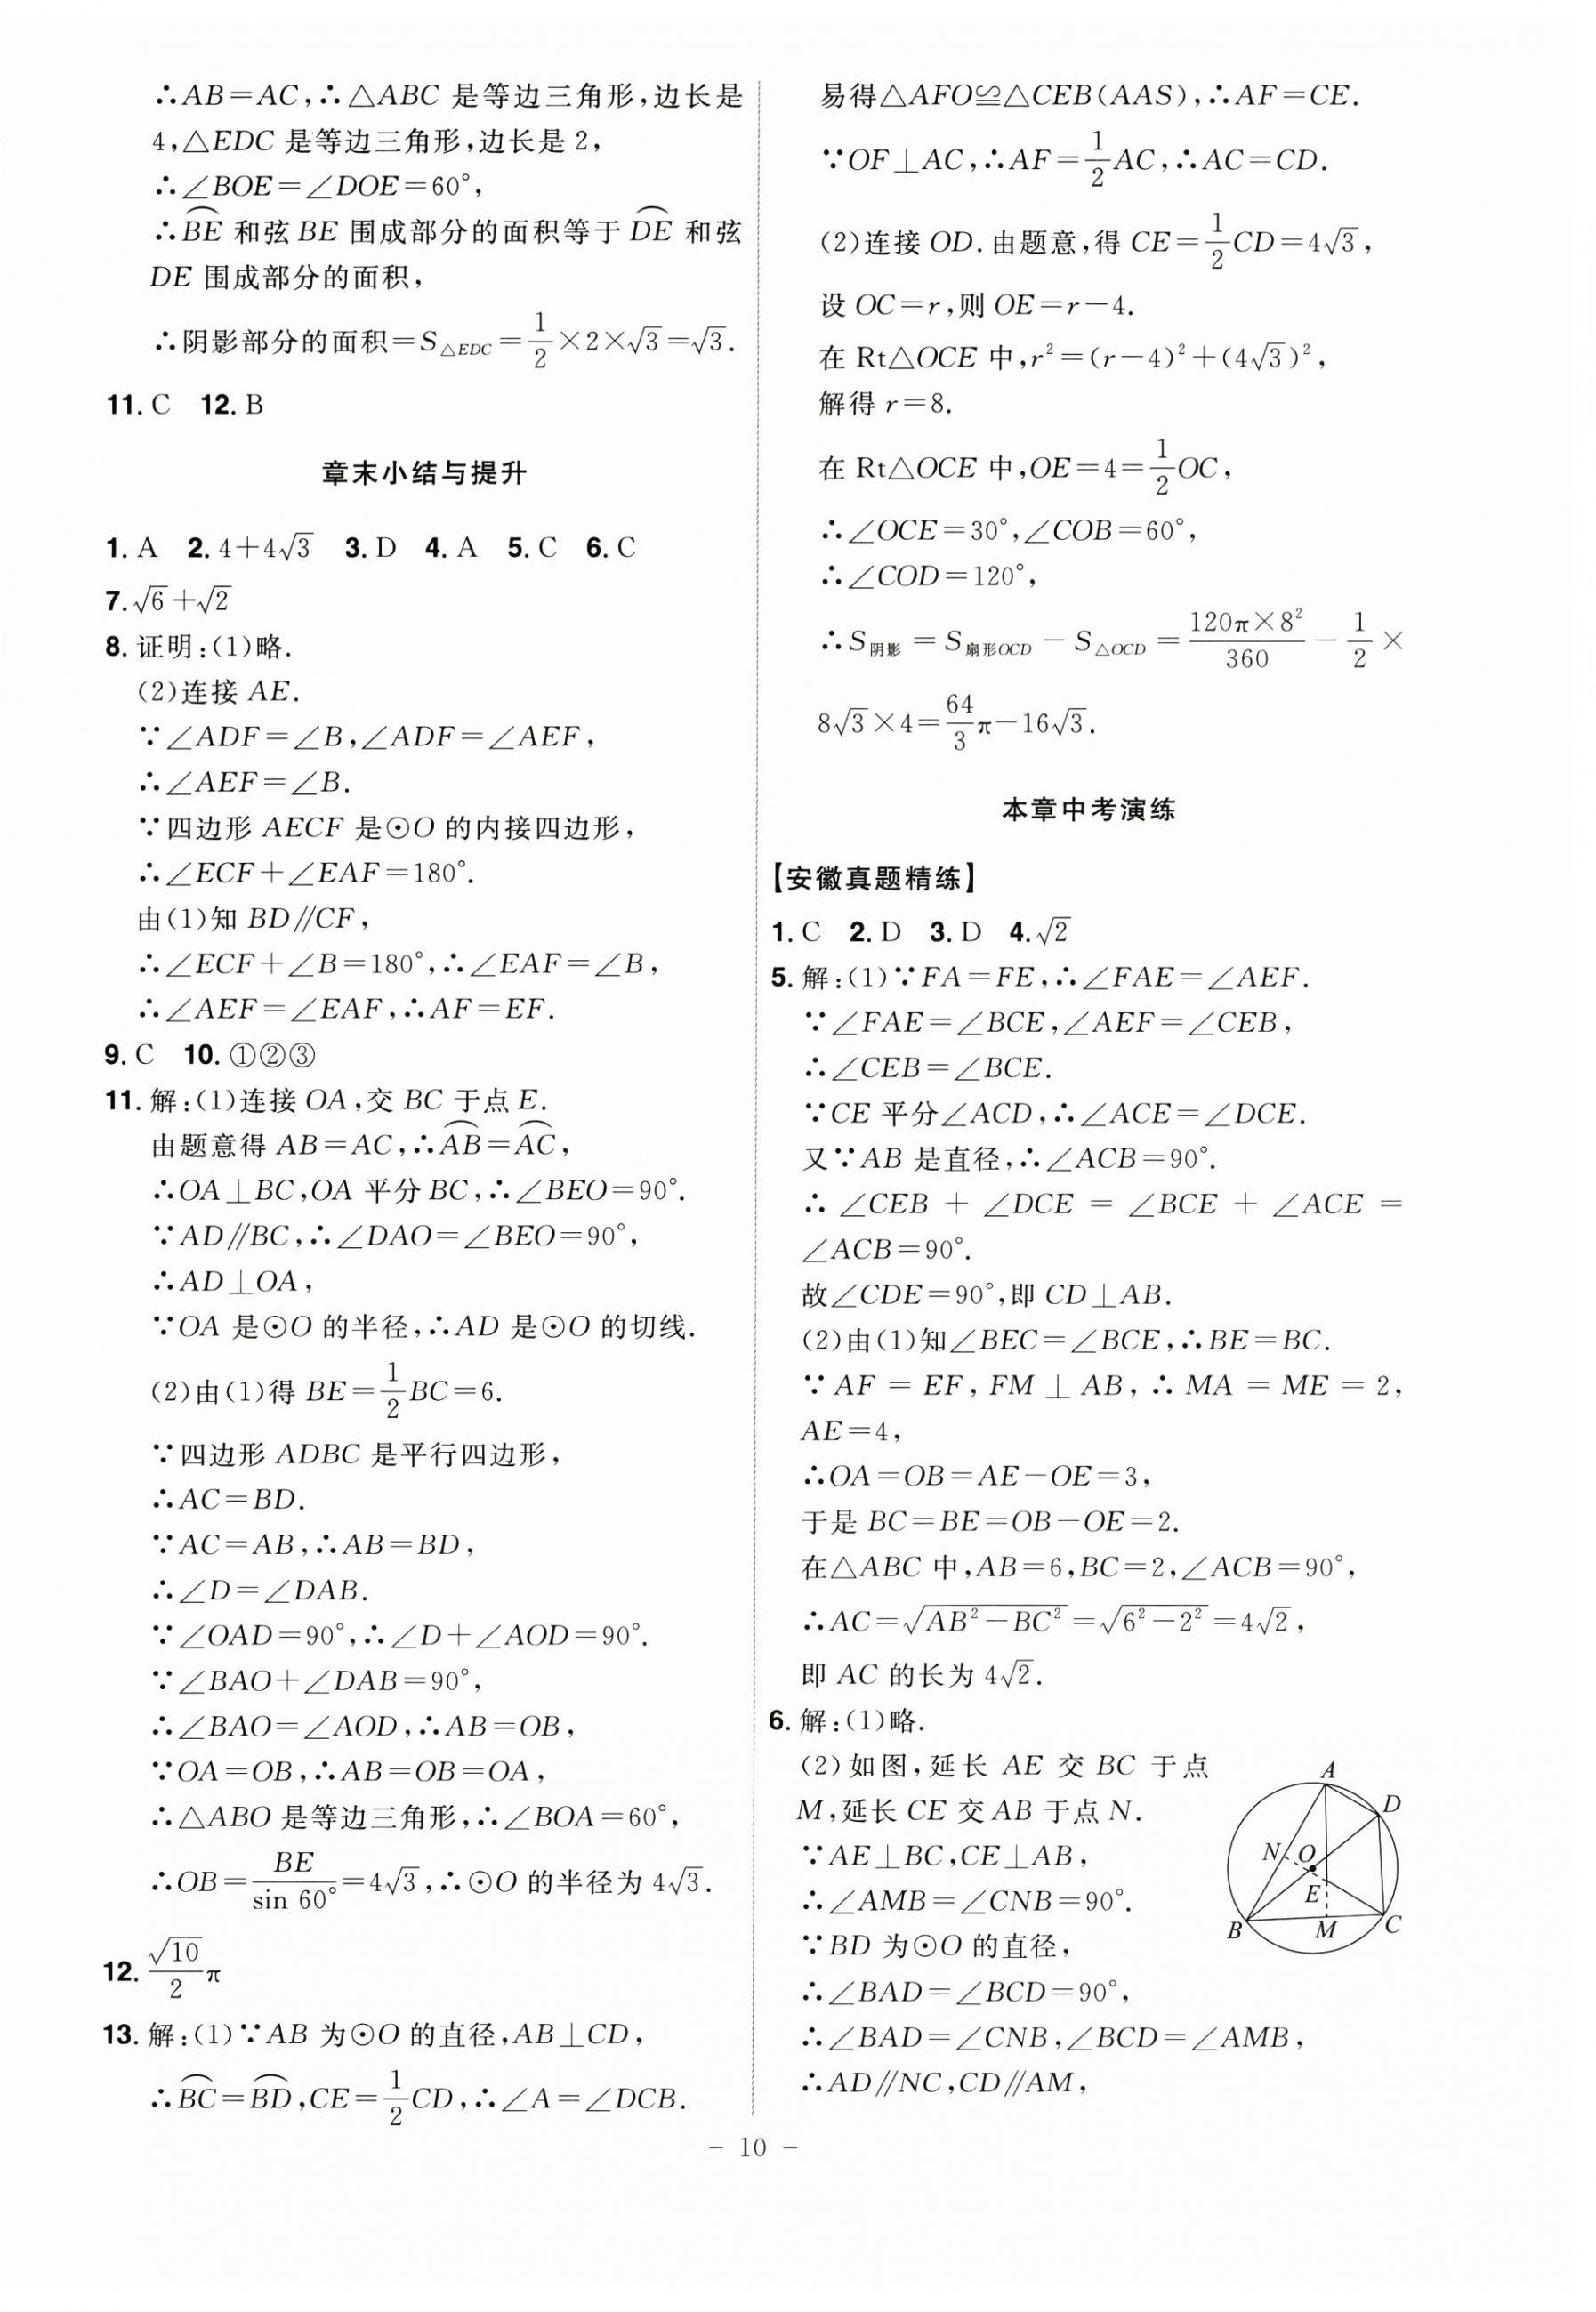 ∴AB=AC,∴△ABC 是等边三角形,边长是
4,△EDC 是等边三角形,边长是 2,
∴∠BOE=∠DOE=60°,
∴⌒BE 和弦 BE 围成部分的面积等于 ⌒DE 和弦
DE 围成部分的面积,
∴阴影部分的面积=S△EDC=1/2×2×√3=√3.
11. C 12. B
章末小结与提升
1. A 2. 4+4√3 3. D 4. A 5. C 6. C
7. √6+√2
8. 证明:(1)略.
(2)连接 AE.
∵∠ADF=∠B,∠ADF=∠AEF,
∴∠AEF=∠B.
∵四边形 AECF 是⊙O 的内接四边形,
∴∠ECF+∠EAF=180°.
由(1)知 BD∥CF,
∴∠ECF+∠B=180°,∴∠EAF=∠B,
∴∠AEF=∠EAF,∴AF=EF.
9. C 10. ①②③
11. 解:(1)连接 OA,交 BC 于点 E.
由题意得 AB=AC,∴⌒AB=⌒AC,
∴OA⊥BC,OA 平分 BC,∴∠BEO=90°.
∵AD∥BC,∴∠DAO=∠BEO=90°,
∴AD⊥OA,
∵OA 是⊙O 的半径,∴AD 是⊙O 的切线.
(2)由(1)得 BE=1/2BC=6.
∵四边形 ADBC 是平行四边形,
∴AC=BD.
∵AC=AB,∴AB=BD,
∴∠D=∠DAB.
∵∠OAD=90°,∴∠D+∠AOD=90°.
∵∠BAO+∠DAB=90°,
∴∠BAO=∠AOD,∴AB=OB,
∵OA=OB,∴AB=OB=OA,
∴△ABO 是等边三角形,∴∠BOA=60°,
∴OB=BE/sin 60°=4√3,∴⊙O 的半径为 4√3.
12. √10/2 π
13. 解:(1)∵AB 为⊙O 的直径,AB⊥CD,
∴⌒BC=⌒BD,CE=1/2CD,∴∠A=∠DCB.
易得△AFO≌△CEB(AAS),∴AF=CE.
∵OF⊥AC,∴AF=1/2AC,∴AC=CD.
(2)连接 OD. 由题意,得 CE=1/2CD=4√3,
设 OC=r,则 OE=r-4.
在 Rt△OCE 中,r²=(r-4)²+(4√3)²,
解得 r=8.
在 Rt△OCE 中,OE=4=1/2OC,
∴∠OCE=30°,∠COB=60°,
∴∠COD=120°,
∴S阴影=S扇形OCD-S△OCD=120π×8²/360-1/2×
8√3×4=64/3π-16√3.
本章中考演练
【安徽真题精练】
1. C 2. D 3. D 4. √2
5. 解:(1)∵FA=FE,∴∠FAE=∠AEF.
∵∠FAE=∠BCE,∠AEF=∠CEB,
∴∠CEB=∠BCE.
∵CE 平分∠ACD,∴∠ACE=∠DCE.
又∵AB 是直径,∴∠ACB=90°.
∴∠CEB+∠DCE=∠BCE+∠ACE=
∠ACB=90°.
故∠CDE=90°,即 CD⊥AB.
(2)由(1)知∠BEC=∠BCE,∴BE=BC.
∵AF=EF,FM⊥AB,∴MA=ME=2,
AE=4,
∴OA=OB=AE-OE=3,
于是 BC=BE=OB-OE=2.
在△ABC 中,AB=6,BC=2,∠ACB=90°,
∴AC=√(AB²-BC²)=√(6²-2²)=4√2,
即 AC 的长为 4√2.
6. 解:(1)略.
(2)如图,延长 AE 交 BC 于点
M,延长 CE 交 AB 于点 N.
∵AE⊥BC,CE⊥AB,
∴∠AMB=∠CNB=90°.
∵BD 为⊙O 的直径,
∴∠BAD=∠BCD=90°,
∴∠BAD=∠CNB,∠BCD=∠AMB,
∴AD∥NC,CD∥AM,
A
D
N O
E
B M C
- 10 -